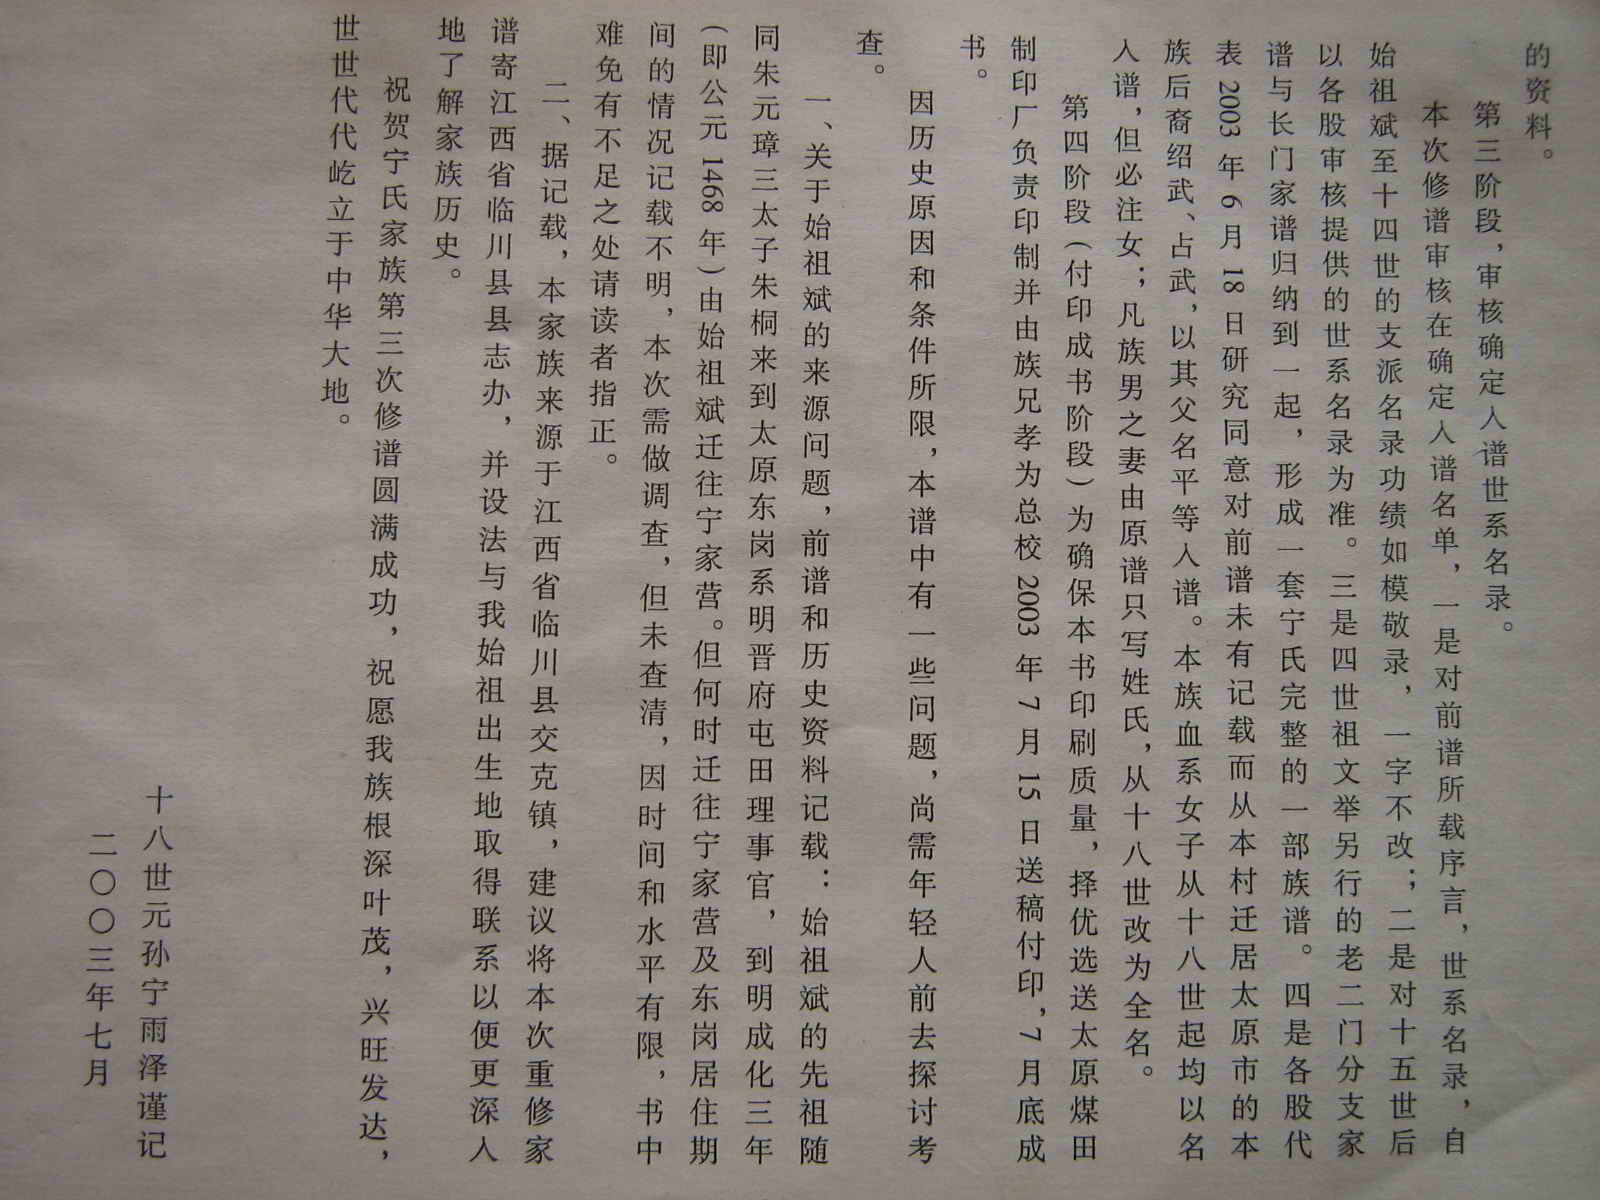 的资料。
第三阶段，审核确定入谱世系名录。
本次修谱审核在确定入谱名单，一是对前谱所载序言，世系名录，自
始祖斌至十四世的支派名录功绩如模敬录，一字不改；二是对十五世后
以各股审核提供的世系名录为准。三是四世祖文举另行的老二门分支家
谱与长门家谱归纳到一起，形成一套宁氏完整的一部族谱。四是各股代
表 2003 年 6 月 18 日研究同意对前谱未有记载而从本村迁居太原市的本
族后裔绍武、占武，以其父名平等入谱。本族血系女子从十八世起均以名
入谱，但必注女；凡族男之妻由原谱只写姓氏，从十八世改为全名。
第四阶段（付印成书阶段）为确保本书印刷质量，择优选送太原煤田
制印厂负责印制并由族兄孝为总校 2003 年 7 月 15 日送稿付印，7 月底成
书。
因历史原因和条件所限，本谱中有一些问题，尚需年轻人前去探讨考
查。
一、关于始祖斌的来源问题，前谱和历史资料记载：始祖斌的先祖随
同朱元璋三太子朱桐来到太原东岗系明晋府屯田理事官，到明成化三年
（即公元 1468 年）由始祖斌迁往宁家营。但何时迁往宁家营及东岗居住期
间的情况记载不明，本次需做调查，但未查清，因时间和水平有限，书中
难免有不足之处请读者指正。
二、据记载，本家族来源于江西省临川县交克镇，建议将本次重修家
谱寄江西省临川县县志办，并设法与我始祖出生地取得联系以便更深入
地了解家族历史。
祝贺宁氏家族第三次修谱圆满成功，祝愿我族根深叶茂，兴旺发达，
世世代代屹立于中华大地。
十八世元孙宁雨泽谨记
二〇〇三年七月